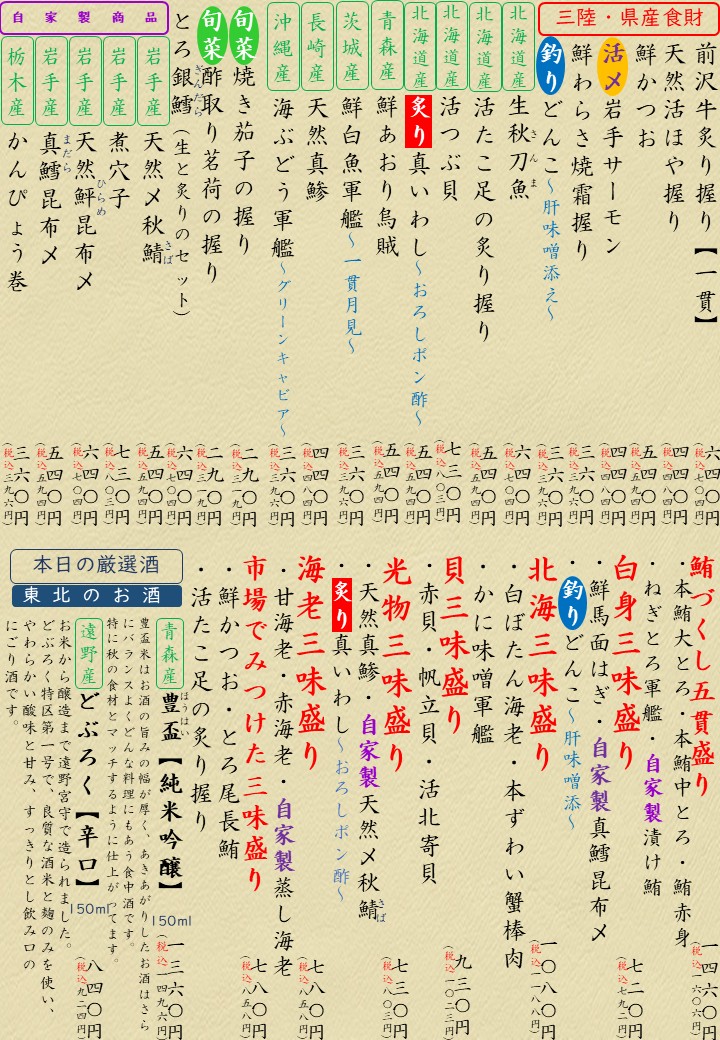 三陸・県産食財
前沢牛炙り握り【一貫】 六四〇円（税込七〇四円）
天然活ほや握り 四四〇円（税込四八四円）
鮮かつお 五四〇円（税込五九四円）
活〆岩手サーモン 四四〇円（税込四八四円）
鮮わらさ焼霜握り 三六〇円（税込三九六円）
釣りどんこ～肝味噌添え～ 三六〇円（税込三九六円）
北海道産 生秋刀魚 さんま 六四〇円（税込七〇四円）
北海道産 活たこ足の炙り握り 五四〇円（税込五九四円）
北海道産 活つぶ貝 七三〇円（税込八〇三円）
北海道産 炙り真いわし～おろしポン酢～ 五四〇円（税込五九四円）
青森産 鮮あおり烏賊 五四〇円（税込五九四円）
茨城産 鮮白魚軍艦～一貫月見～ 三六〇円（税込三九六円）
長崎産 天然真鯵 四四〇円（税込四八四円）
沖縄産 海ぶどう軍艦～グリーンキャビア～ 三六〇円（税込三九六円）
旬菜 焼き茄子の握り 二九〇円（税込三一九円）
旬菜 酢取り茗荷の握り 二九〇円（税込三一九円）
とろ銀鱈 ぎんだら（生と炙りのセット） 六四〇円（税込七〇四円）
自家製商品
岩手産 天然〆秋鯖 さば 五四〇円（税込五九四円）
岩手産 煮穴子 七三〇円（税込八〇三円）
岩手産 天然鮃昆布〆 ひらめ 六四〇円（税込七〇四円）
岩手産 真鱈昆布〆 まだら 五四〇円（税込五九四円）
栃木産 かんぴょう巻 三六〇円（税込三九六円）
鮪づくし五貫盛り
・本鮪大とろ・本鮪中とろ・鮪赤身 一四六〇円（税込一六〇六円）
・ねぎとろ軍艦・自家製漬け鮪
白身三味盛り
・鮮馬面はぎ・自家製真鱈昆布〆 七二〇円（税込七九二円）
・釣りどんこ～肝味噌添～
北海三味盛り
・白ぼたん海老・本ずわい蟹棒肉 一〇八〇円（税込一一八八円）
・かに味噌軍艦
貝三味盛り
・赤貝・帆立貝・活北寄貝 九三〇円（税込一〇二三円）
光物三味盛り
・天然真鯵・自家製天然〆秋鯖 さば 七三〇円（税込八〇三円）
・炙り真いわし～おろしポン酢～
海老三味盛り
・甘海老・赤海老・自家製蒸し海老 七八〇円（税込八五八円）
市場でみつけた三味盛り
・鮮かつお・とろ尾長鮪 七八〇円（税込八五八円）
・活たこ足の炙り握り
本日の厳選酒
東北のお酒
青森産 豊盃 ほうはい【純米吟醸】 150ml 一三六〇円（税込一四九六円）
豊盃米はお酒の旨みの幅が厚く、あきあがりしたお酒はさら
にバランスよくどんな料理にもあう食中酒です。
特に秋の食材とマッチするように仕上がってます。
遠野産 どぶろく【辛口】 150ml 八四〇円（税込九二四円）
お米から醸造まで遠野宮守で造られました。
どぶろく特区第一号で、良質な酒米と麹のみを使い、
やわらかい酸味と甘み、すっきりとし飲み口の
にごり酒です。